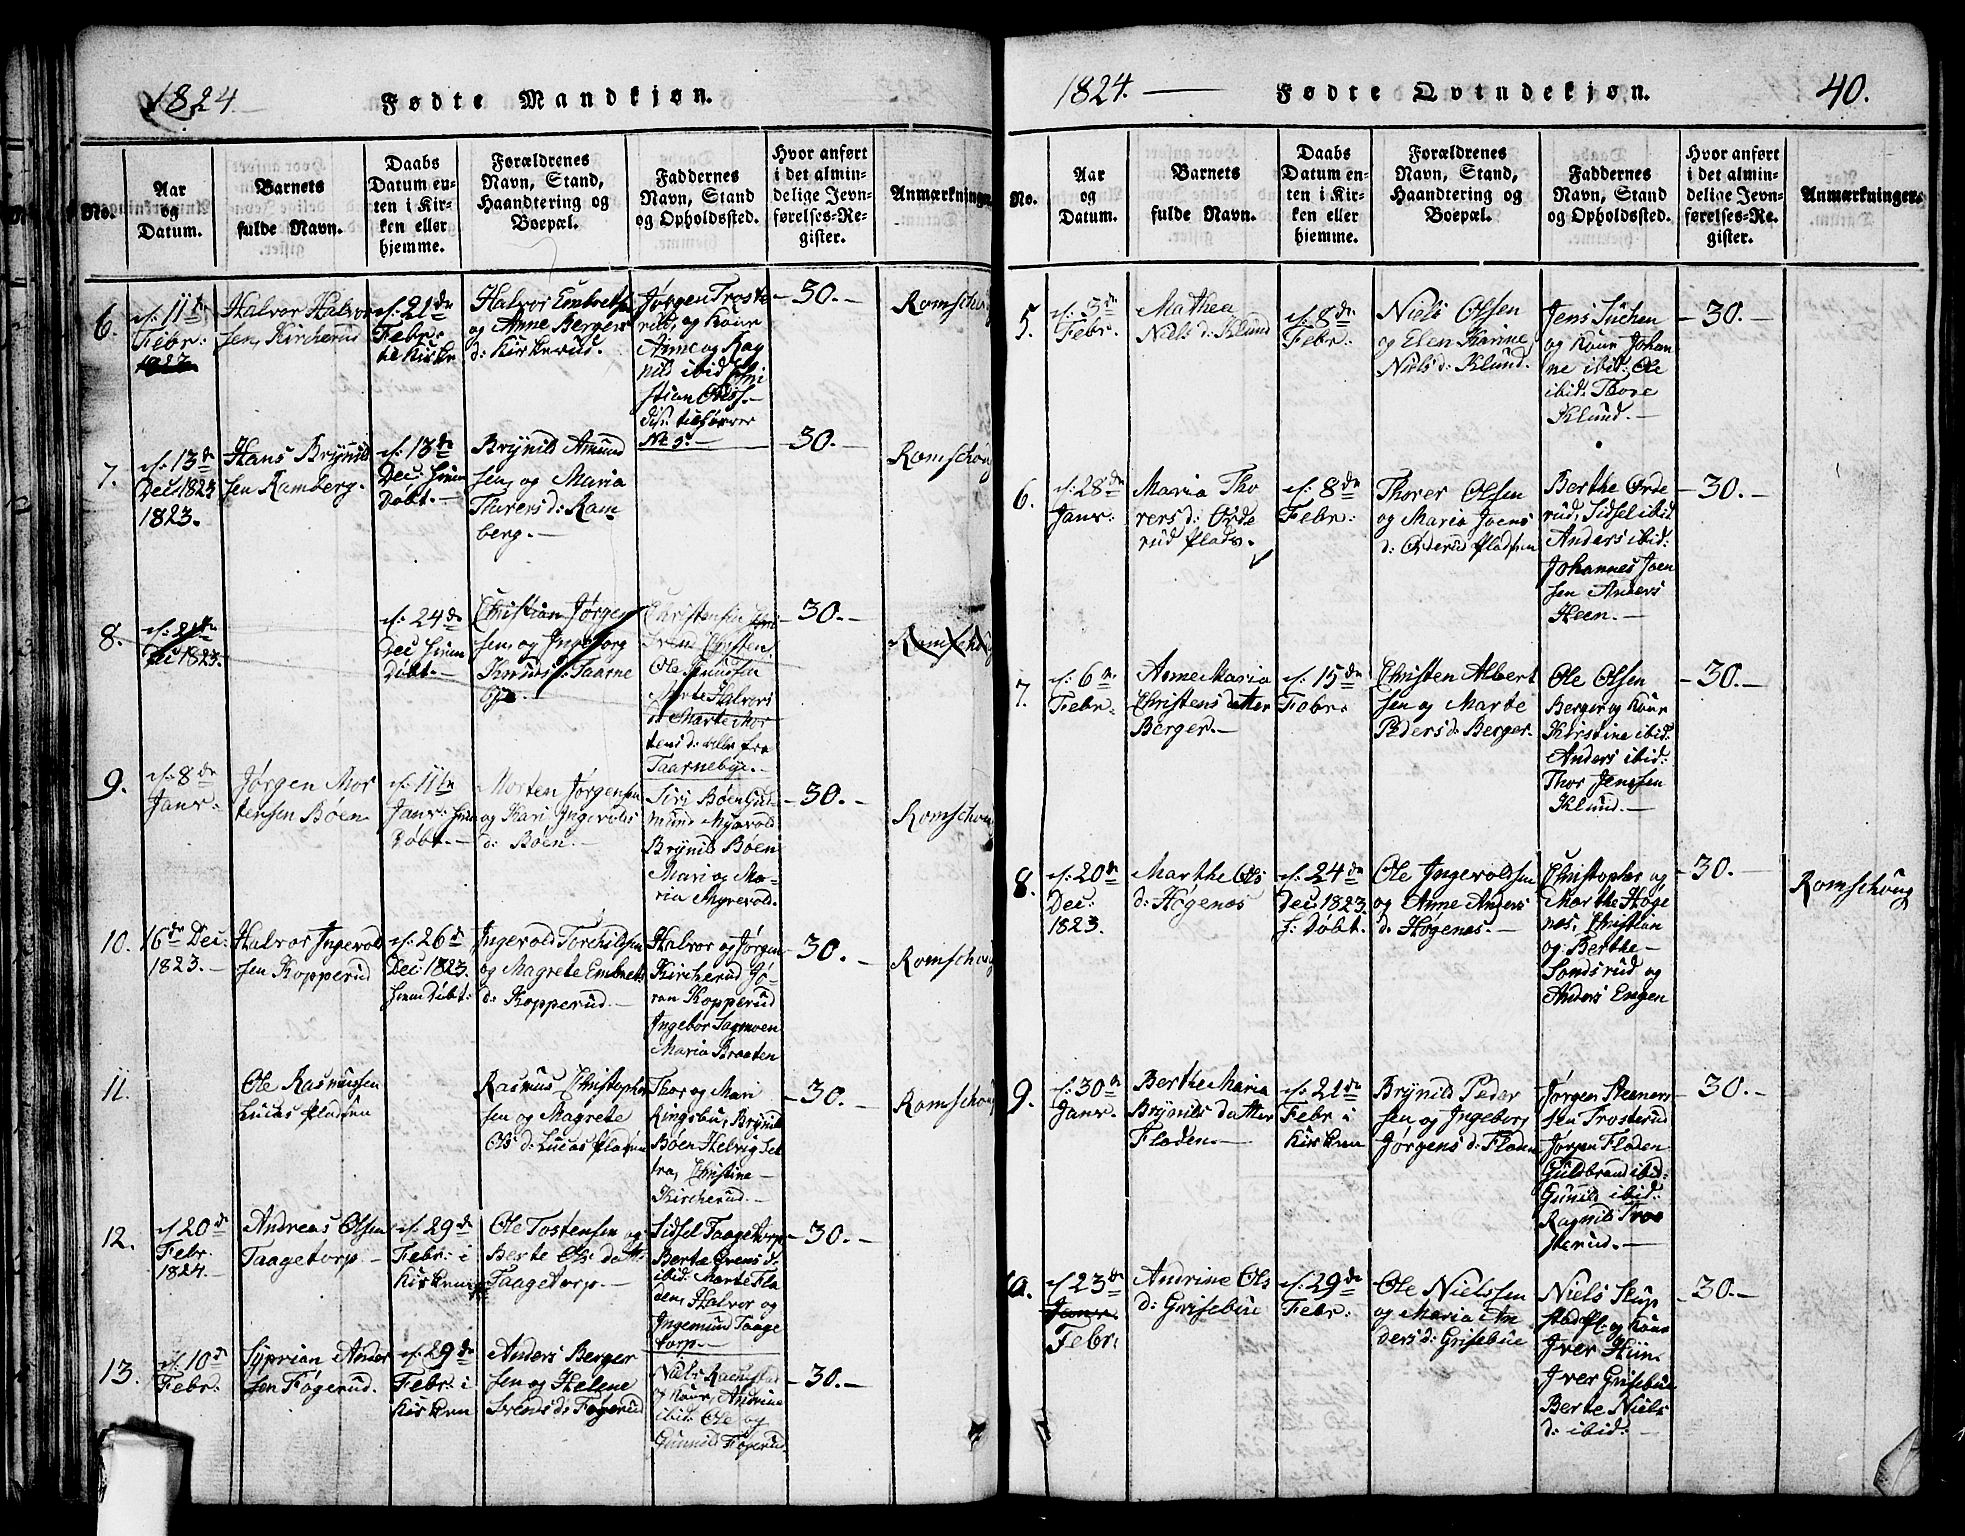 1824
Fødte Mandkjøn.
No.
Aar
og
Datum.
Barnets
fulde Navn.
Daabs
Datum en-
ten i Kir-
ken eller
hjemme.
Forældrenes
Navn, Stand,
Haandtering og
Boepæl.
Faddernes
Navn, Stand
og Opholdssted.
Hvor anført
i det almin-
delige Jevn-
førelses-Re-
gister.
Anmærkninger
6.
d: 11te
Febr:
Halvor Halvor
sen Kircherud
d: 21de
Febr:
Halvor Embretsen
og Anne Bergers
d: Kirkerud.
Jørgen Troste
rud, og Kone
Anne og Rag
nild ibid
No 5.
30.
Romschoug
7.
d: 13de
Dec 1823
1823.
Hans Brynild
sen Ramberg.
d: 13de
Dec: hiem
Døbt.
Brynild Amund
sen, og Maria
Thorersd: Ram
berg.
30.
Romschoug
8.
Dec 1823.
d: 24de
Dec hiem
Døbt.
Christian Jørgen
sen, og Ingeborg
Knudsd: Taarne
bye.
Ole Knudsen
Marte Halvors
d: Marte Mor
tensd: alle fra
Taarnebye.
30.
Romschoug
9.
d: 8de
Janr:
Jørgen Mor
tensen Bøen
d: 11te
Janr: hiem
Døbt.
Morten Jørgensen
og Kari Ingevolds
d: Bøen.
Siri Bøen Gud
mund Myrvold
Brynild Bøen
Mari og Ma-
ria Myrevold.
30.
Romschoug
10.
16de Dec:
1823.
Halvor Ingevold
sen Kopperud
d: 26de
Dec: 1823.
hiem Døbt:
Ingevold Torchildsen
og Magrete Embrets
d: Kopperud.
Halvor og Jørgen
Kircherud Gø-
ran Kopperud
Ingebor Sagmoen
Maria Braaten
30.
Romschoug
11.
Ole Rasmussen
Lucas pladsen
Rasmus Christopher
sen og Magrete
Ols d: Lucas pladsen
Thor og Mari
Ringsbu, Brynild
Bøen Helvig Set
ra, Christine
Kircherud.
30.
Romschoug
12.
d: 20de
Febr:
1824.
Andreas Olsen
Taagetorp
d: 29de
Febr: i
Kirken
Ole Tostensen og
Berte Ols datter
Taagetorp.
Sidsel Taagetorp
Berte Evens d:
ibid: Marte Fla
den, Halvor og
Ingemund Taage
torp.
30.
13.
d: 10de
Febr:
Syprian Ander
sen Fogerud.
d: 29de
Febr: i
Kirken
Anders Berger
sen og Helene
Svensd: Fogerud
og Kone, Andrine
ibid: Ole og
Gunnild Fogerud.
30.
1824.
Fødte Qvindekjøn.
40.
No.
Aar
og
Datum.
Barnets
fulde Navn.
Daabs
Datum en-
ten i Kir-
ken eller
hjemme.
Forældrenes
Navn, Stand,
Haandtering og
Boepæl.
Faddernes
Navn, Stand
og Opholdssted.
Hvor anført
i det almin-
delige Jevn-
førelses-Re-
gister.
Anmærkninger.
5.
d: 3de
Febr:
Mathea
Nielsd: Klund
d: 8de
Febr:
Niels Olsen
og Elen Karine
Nielsd: Klund.
og Kone Johan
ne ibid: Ole
ibid: Tore
Klund.
30.
6.
d: 28de
Janr:
Maria Tho
rersd: Orde
rud plads.
d: 8de
Febr:
Thorer Olsen
og Maria Joens
d: Orderud pladsen
Berthe Orde
rud, Sidsel ibid
Anders ibid:
Johannes Joen
sen Anders
Heen.
30.
7.
d: 6te
Febr:
Anne Maria
Christensdatter
Berger.
d: 15de
Febr:
Christen Albert
sen og Marte
Pedersd: Berger.
Ole Olsen
Berger og Kone
Kirstine ibid:
Anders ibid:
Thor Jenssen
Klund.
30.
8.
d: 20de
Dec:
1823.
Marthe Ols
d: Høgenæs
d: 24de
Dec: 1823.
h: Døbt.
Ole Ingevoldsen
og Anne Anders
d: Høgenæs.
Christopher og
Marthe Høge
næs, Christian
og Berthe
Sandsrud og
Anders Engen
30.
Romschoug
9.
d: 30de
Janr:
Berthe Maria
Brynilds datter
Fladen.
d: 21de
Febr: i
Kirken
Brynild Peder
sen og Ingeborg
Jørgens d: Fladen
Jørgen Steener
sen Trosterud
Jørgen Fladen
Guldbrand ibid:
Gunild ibid:
Ragnild Tros
terud.
30.
10.
d: 23de
Febr:
Andrine Ols
d: Grisebue
d: 29de
Febr:
Ole Nielssen
og Maria An
dersd: Grisebue
Niels Skup
og Kone
Iver Huin
Iver Grisebue
Berte Niels
d: ibid:
30.